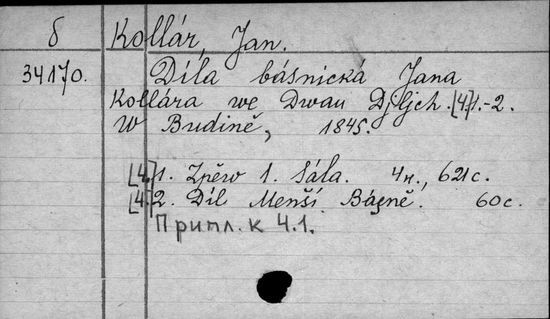 б Kollár, Jan.
34170. Díla básnická Jana
Kollára we Dwau Djljch. [Ч]1.-2.
W Budině, 1845.
[Ч.]1. Zpěw 1. Sála. 4н., 621с.
[Ч.]2. Díl Menší Básně. 60с.
Припл. к Ч.1.